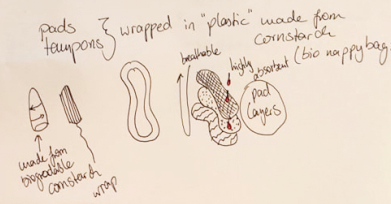 pads
tampons } wrapped in "plastic" made from
cornstarch
(bio nappy bag
breathable
highly
absorbent
pad
layers
made from
biogradable
cornstarch
wrap